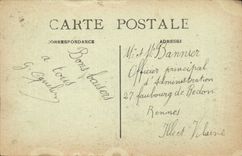 CARTE POSTALE
CORRESPONDANCE
ADRESSE
Bons baisers
à tous
G
Mr et Mme Bannier
Officier principal
d'Administration
27 faubourg de Redon
Rennes
Ille et Vilaine